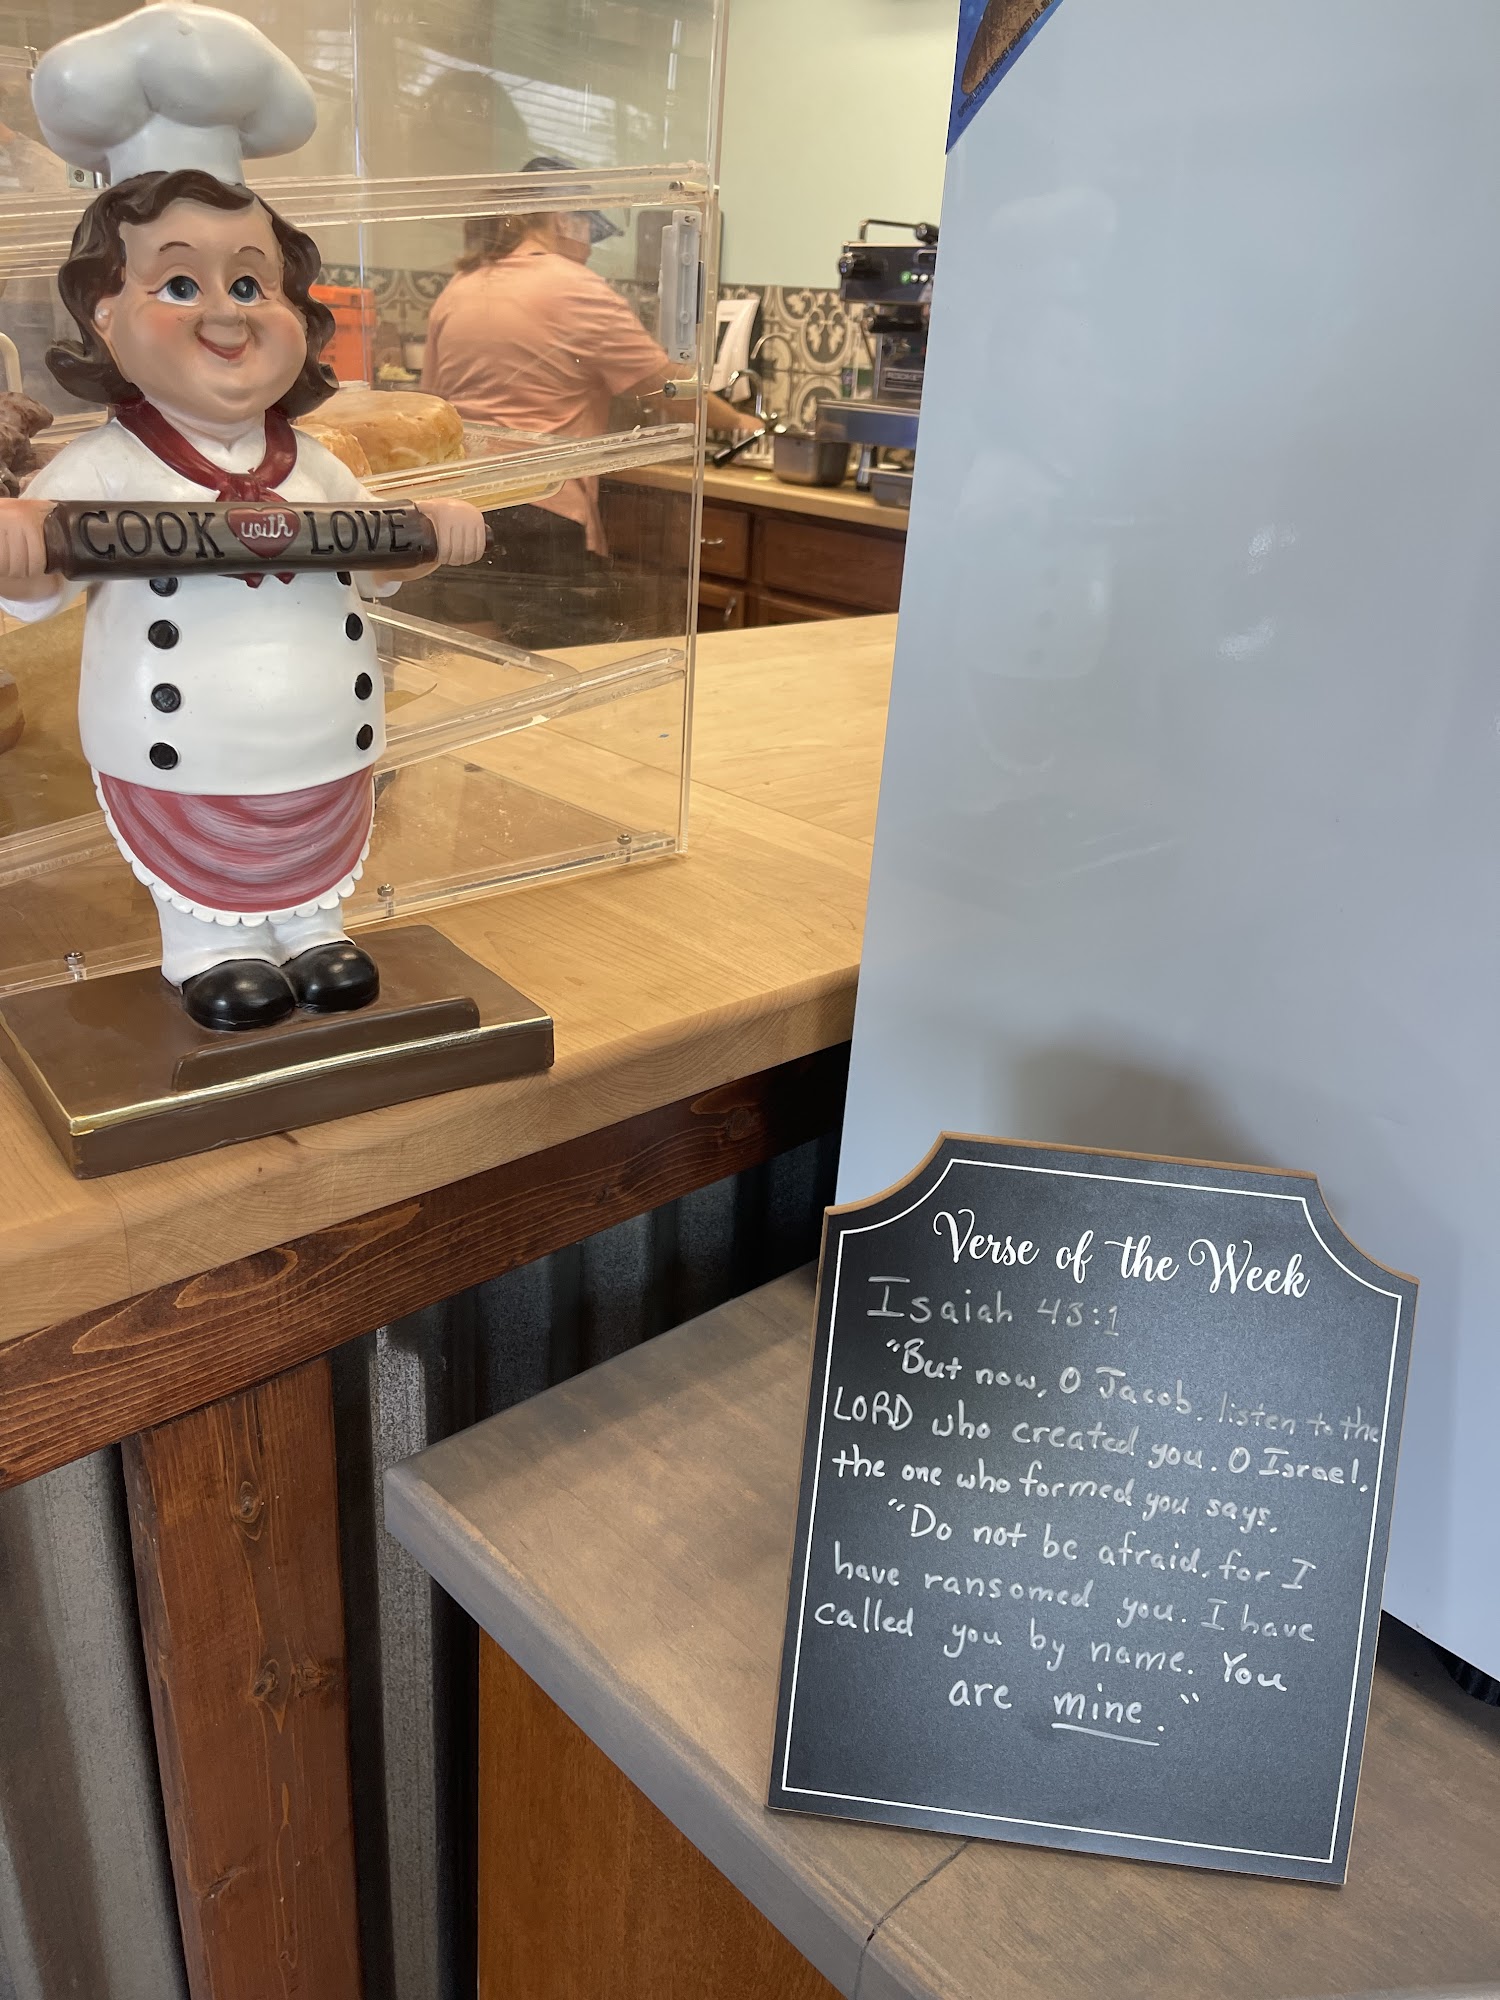 COOK with LOVE.
Verse of the Week
Isaiah 43:1
"But now, O Jacob, listen to the
LORD who created you. O Israel,
the one who formed you says.
"Do not be afraid, for I
have ransomed you. I have
called you by name. You
are mine."